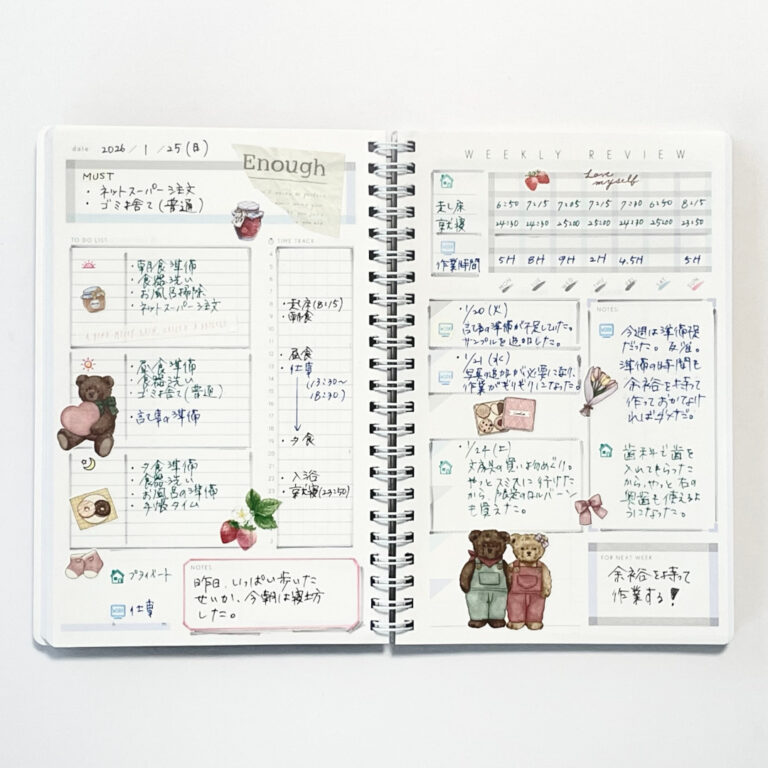 date 2026/1/25(日)
Enough
MUST
・ネットスーパー注文
・ゴミ捨て(普通)
TO DO LIST
・朝食準備
・食器洗い
・お風呂掃除
・ネットスーパー注文
・昼食準備
・食器洗い
・ゴミ捨て(普通)
・記事の準備
・夕食準備
・食器洗い
・お風呂の準備
・手帳タイム
プライベート
仕事
TIME TRACK
・起床(8:15)
・朝食
・昼食
・仕事
(13:30〜
18:30)
・夕食
・入浴
・就寝(23:50)
NOTES
昨日、いっぱい歩いた
せいか、今朝は寝坊
した。
WEEKLY REVIEW
Love myself
起床 6:50 7:15 7:05 7:15 7:30 6:50 8:15
就寝 24:30 24:30 25:00 25:00 24:30 25:00 23:50
作業時間 5H 8H 9H 2H 4.5H 5H
・1/20(火)
記事の準備が不足していた。
サンプルを追加した。
・1/21(水)
写真の追加が必要になり、
作業がもりもりになった。
・1/24(土)
文房具の買い物めぐり。
やっとスミスに行けた
から、限定のロルバーン
も買えた。
NOTES
今週は準備不足
だった。反省。
準備の時間も
余裕を持って
作っておかなけ
ればダメだ。
歯科で歯を
入れてもらった
から、やっと右の
奥歯も使えるよ
うになった。
FOR NEXT WEEK
余裕を持って
作業する!